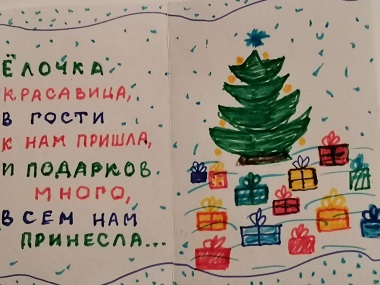 ЁЛОЧКА
КРАСАВИЦА,
В ГОСТИ
К НАМ ПРИШЛА,
И ПОДАРКОВ
МНОГО,
ВСЕМ НАМ
ПРИНЕСЛА...